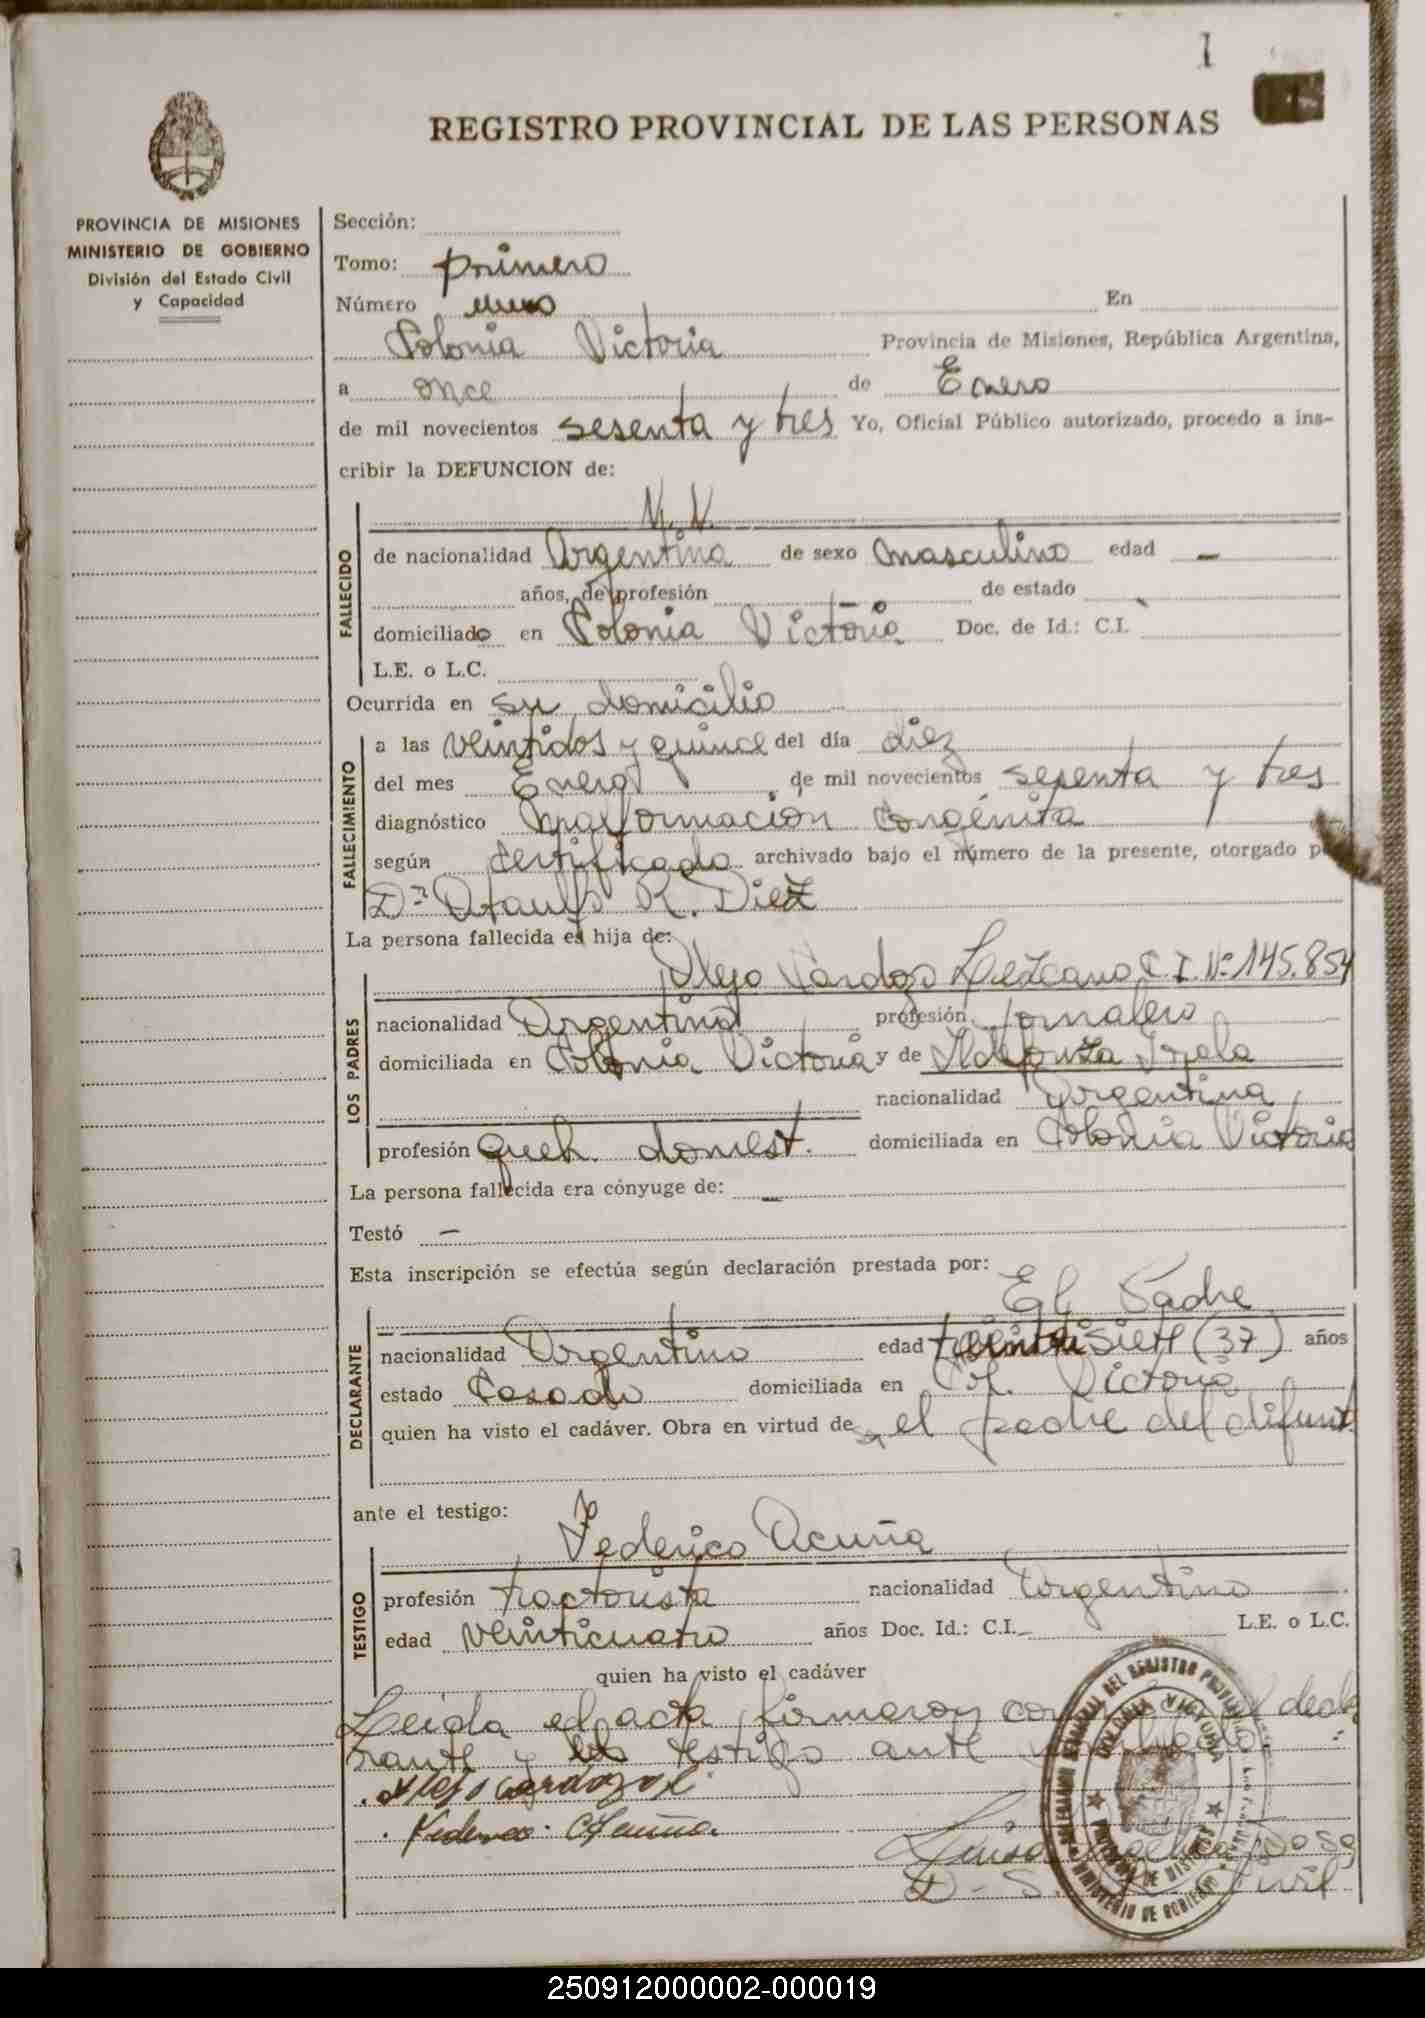 1
REGISTRO PROVINCIAL DE LAS PERSONAS
PROVINCIA DE MISIONES
MINISTERIO DE GOBIERNO
División del Estado Civil
y Capacidad
Sección:
Tomo: primero
Número uno En
Colonia Victoria Provincia de Misiones, República Argentina,
a once de Enero
de mil novecientos sesenta y tres Yo, Oficial Público autorizado, procedo a ins-
cribir la DEFUNCION de:
N. N.
FALLECIDO
de nacionalidad Argentina de sexo masculino edad —
años, de profesión — de estado
domiciliado en Colonia Victoria Doc. de Id.: C.I.
L.E. o L.C.
Ocurrida en su domicilio
FALLECIMIENTO
a las veintidos y quince del día diez
del mes Enero de mil novecientos sesenta y tres
diagnóstico malformación congénita
según certificado archivado bajo el número de la presente, otorgado
Dr R. Diez
La persona fallecida es hija de:
Alejo Cardozo Lezcano C. I. Nº 145.854
LOS PADRES
nacionalidad Argentina profesión jornalero
domiciliada en Colonia Victoria y de Ildefonza Irala
nacionalidad Argentina
profesión queh. domest. domiciliada en Colonia Victoria
La persona fallecida era cónyuge de: —
Testó —
Esta inscripción se efectúa según declaración prestada por:
El Padre
DECLARANTE
nacionalidad Argentino edad treintisiete (37) años
estado Casado domiciliada en Col. Victoria
quien ha visto el cadáver. Obra en virtud de ser el padre del difunt.
ante el testigo:
Federico Acuña
TESTIGO
profesión tractorista nacionalidad Argentino
edad veinticuatro años Doc. Id.: C.I. L.E. o L.C.
quien ha visto el cadáver
Leida el acta firmaron el decla
rante y el testigo ante
Alejo Cardozo L.
Federico Acuña.
Luisa Sosa
D. S. Civil
COLONIA VICTORIA
PROVINCIA DE MISIONES
MINISTERIO DE GOBIERNO
250912000002-000019